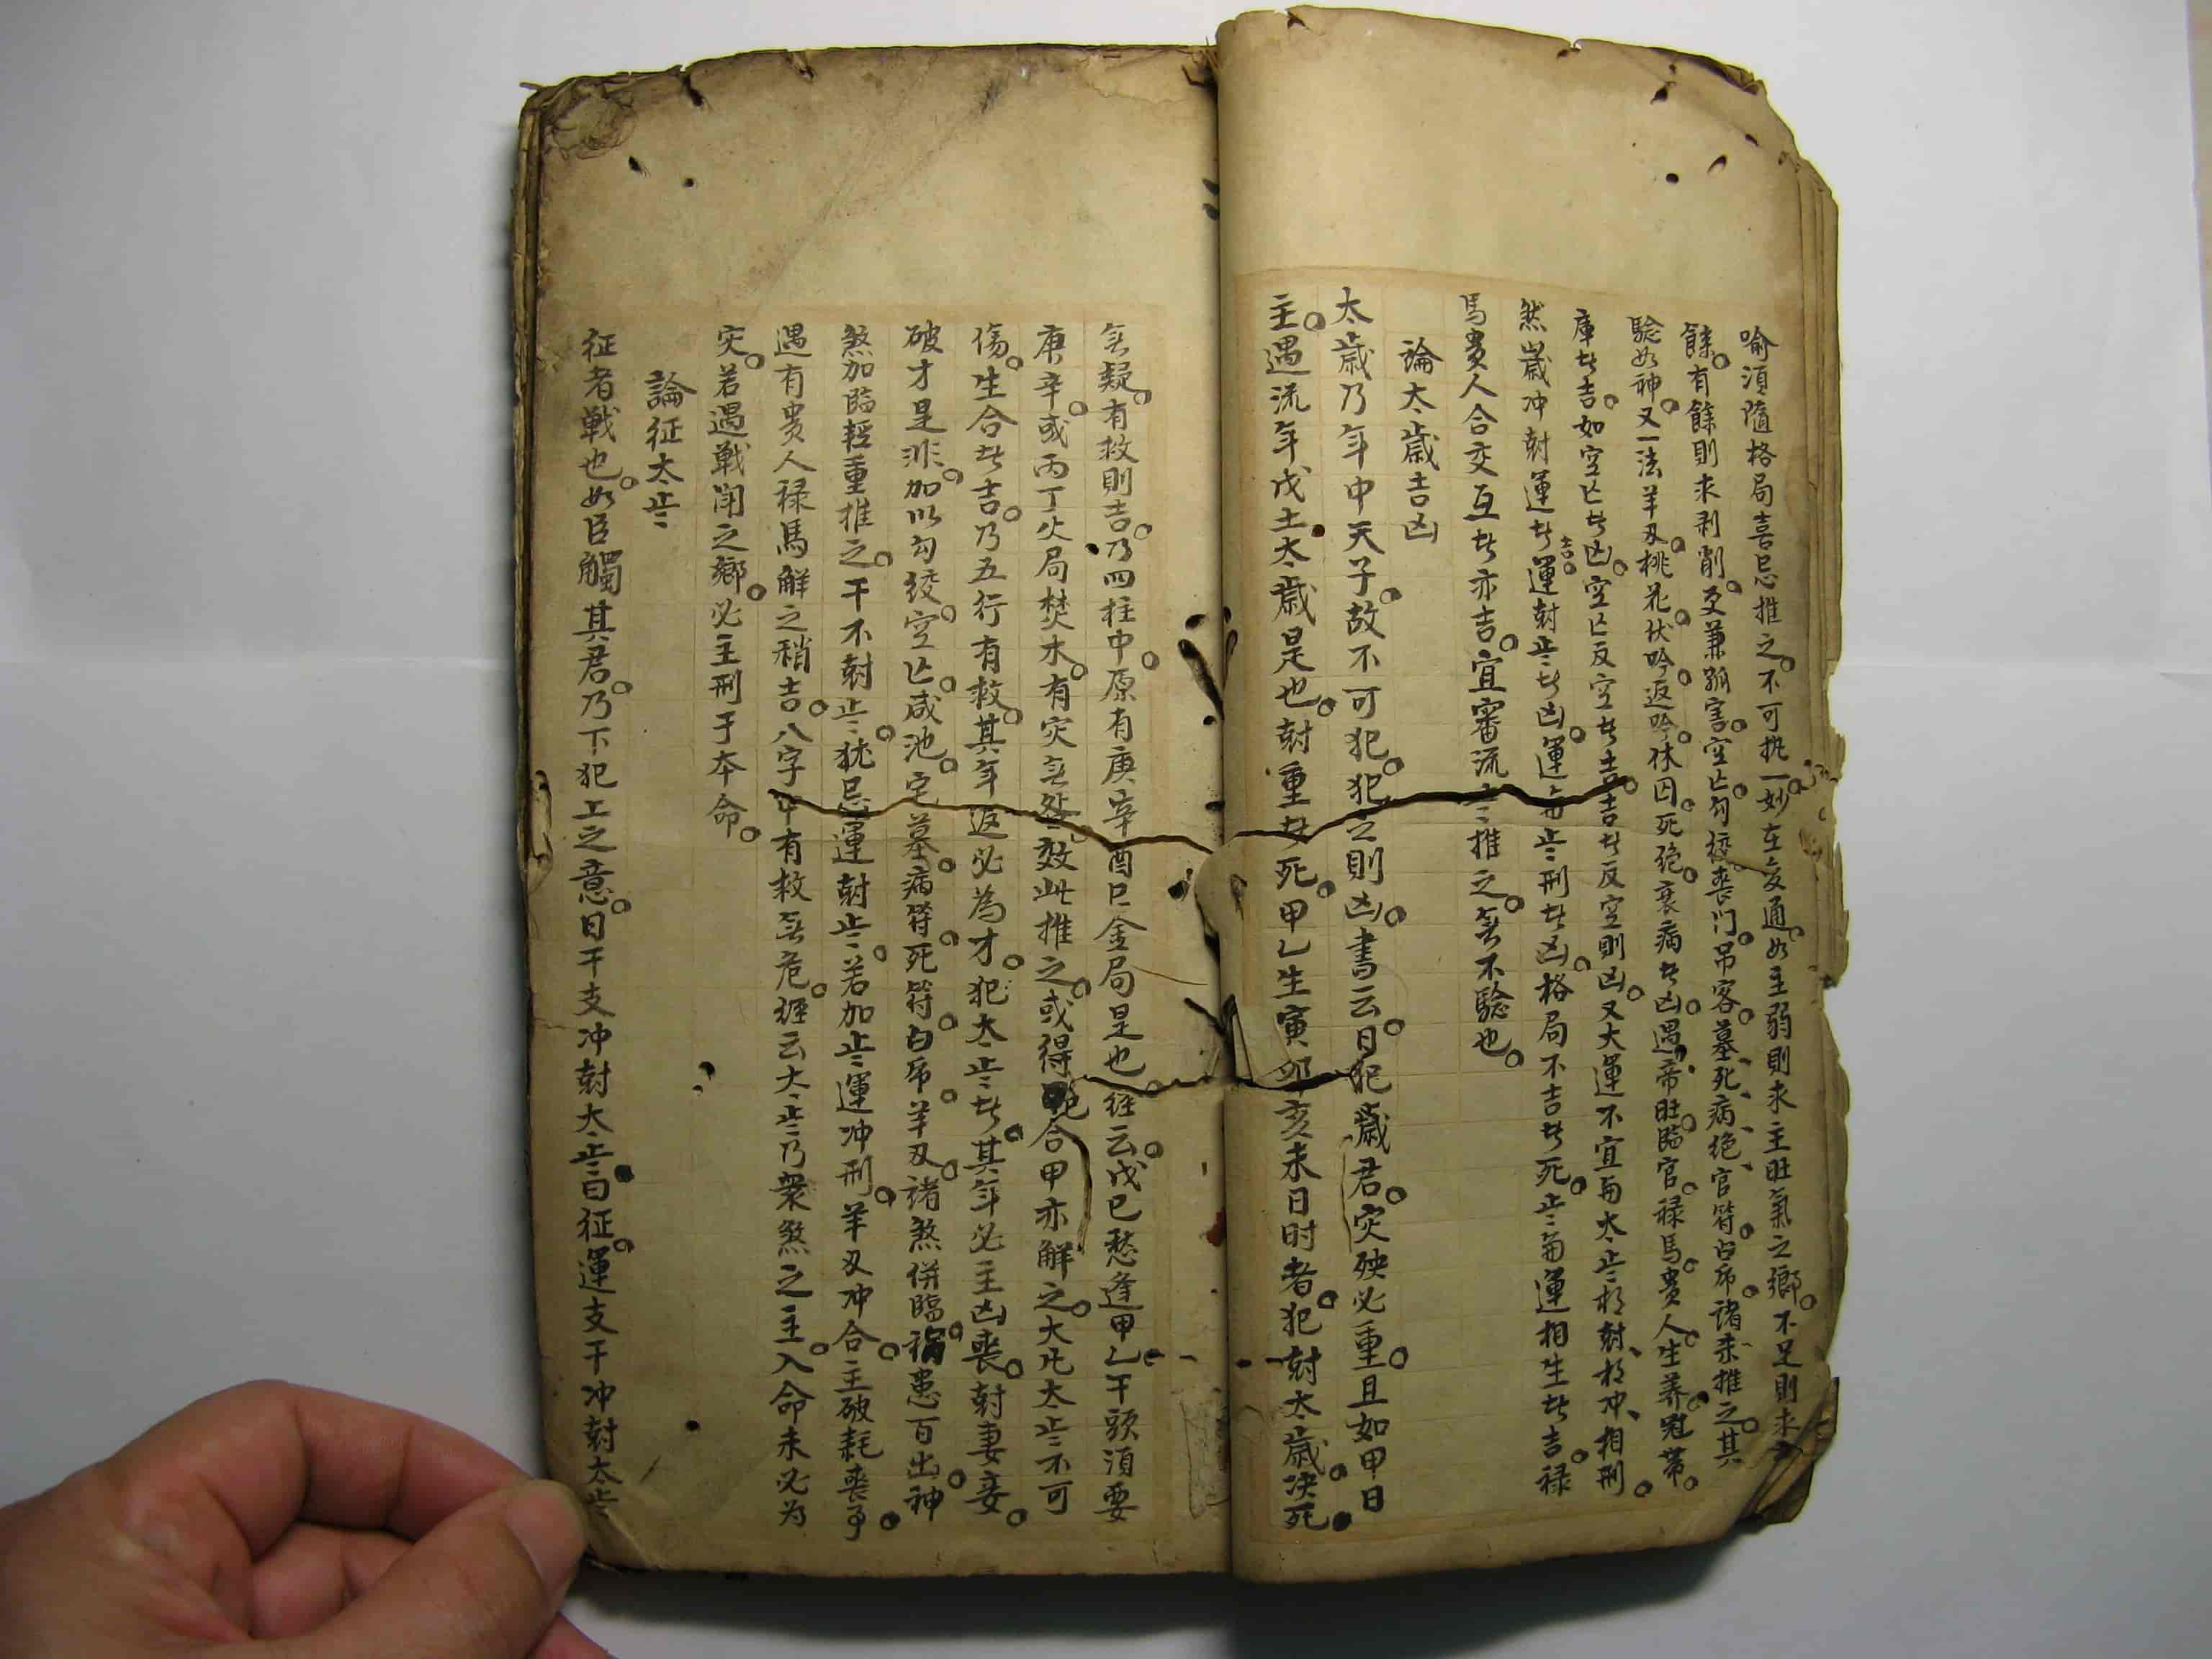 喻須隨格局喜忌推之不可执一妙在变通如主弱則求主旺氣之鄉不足則求
餘有餘則求剥削更兼孤害空亡勾绞丧门吊客墓死病绝官符白帍诸杀推之其
驗如神又一法羊刃桃花伏吟返吟休囚死绝衰病者凶遇帝旺臨官禄馬貴人生养冠帶
庫者吉如空亡者凶空亡反空者吉吉者反空則凶又大運不宜与太歲相尅相冲相刑
然歲冲尅運者吉運尅歲者凶運与歲刑者凶格局不吉者死歲与運相生者吉禄
馬貴人合交互者亦吉宜審流年推之無不驗也
論太歲吉凶
太歲乃年中天子故不可犯犯之則凶書云日犯歲君灾殃必重且如甲日
主遇流年戊土太歲是也尅重者死甲乙生寅卯亥未日时者犯尅太歲决死
無疑有救則吉乃四柱中原有庚辛酉巳金局是也经云戊己愁逢甲乙干頭須要
庚辛或丙丁火局焚木有灾無咎效此推之或得合甲亦解之大凡太歲不可
傷生合者吉乃五行有救其年返必為才犯太歲者其年必主凶喪尅妻妾
破才是非加以勾绞空亡咸池宅墓病符死符白帍羊刃诸煞併臨祸患百出神
煞加臨輕重推之干不尅歲犹忌運尅歲若加歲運冲刑羊刃冲合主破耗喪事
遇有貴人禄馬解之稍吉八字中有救無危经云太歲乃衆煞之主入命未必为
灾若遇戰鬧之鄉必主刑于本命
論征太歲
征者戰也如臣觸其君乃下犯上之意日干支冲尅太歲曰征運支干冲尅太歲